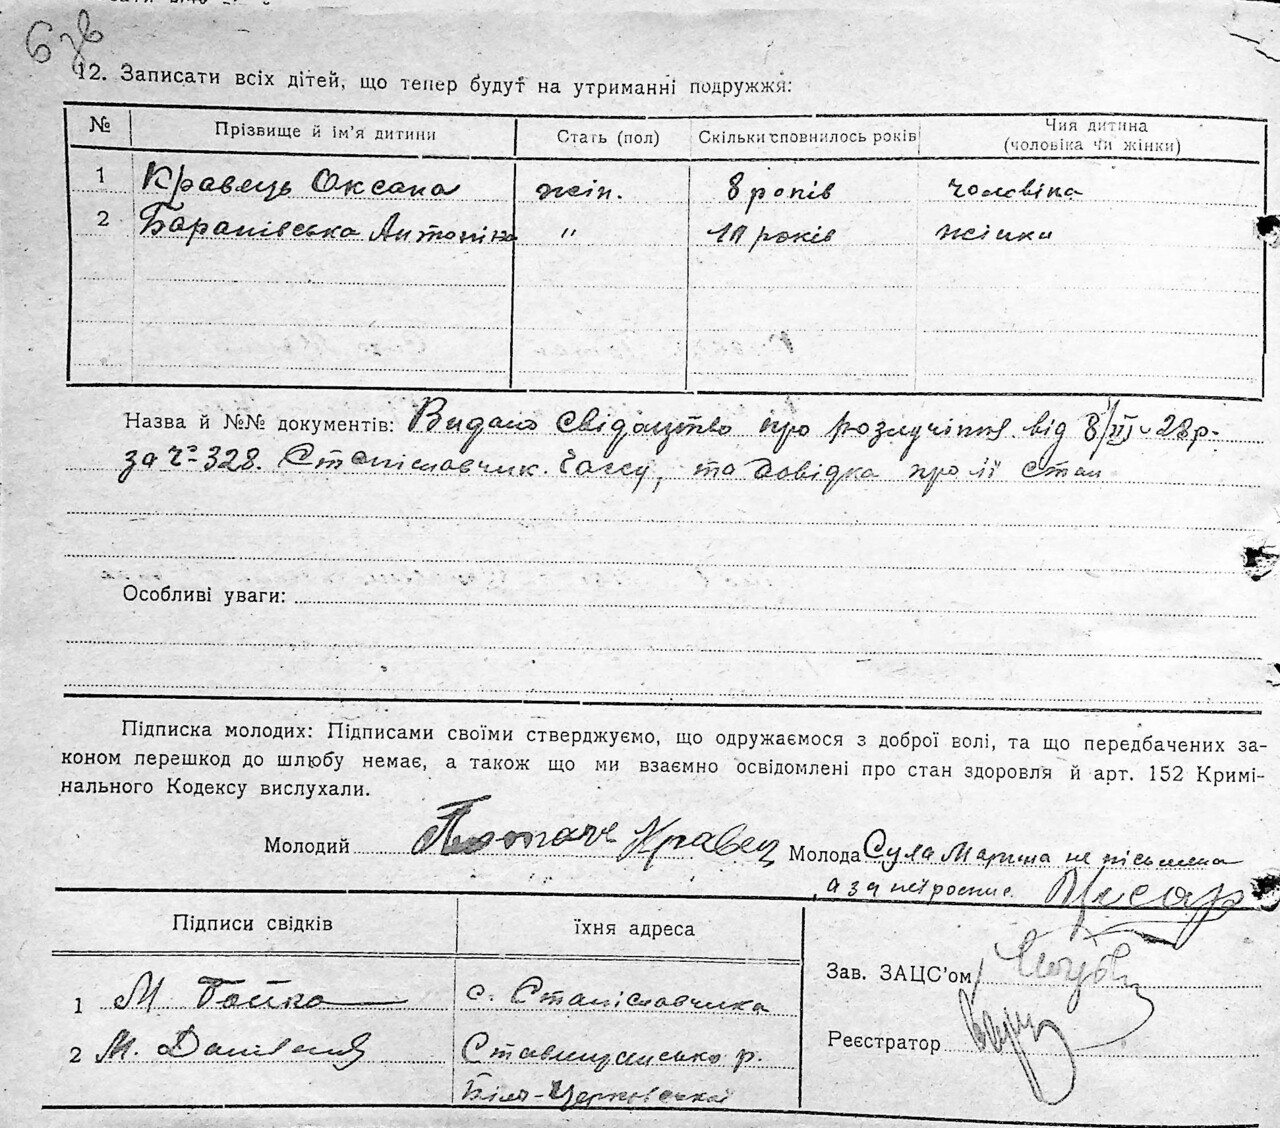 6 зв
12. Записати всіх дітей, що тепер будут на утриманні подружжя:
№ Прізвище й ім'я дитини Стать (пол) Скільки сповнилось років Чия дитина (чоловіка чи жінки)
1 Кравець Оксана жін. 8 років чоловіка
2 Баранівська Антоніна " 10 років жінки
Назва й №№ документів: Видано свідоцтво про розлучіння від 8/III-28р.
за ч-328. Станіславчик. Загсу, та довідка про її стан
Особливі уваги:
Підписка молодих: Підписами своїми стверджуємо, що одружаємося з доброї волі, та що передбачених за-
коном перешкод до шлюбу немає, а також що ми взаємно освідомлені про стан здоровля й арт. 152 Кримі-
нального Кодексу вислухали.
Молодий Кравец Молода Сула Марина не письмена
а за неї роспис.
Підписи свідків їхня адреса
Зав. ЗАЦС'ом
1 М Бойко с. Станіславчика
Реєстратор
2 М. Ставищансько р.
Біло-Церковської